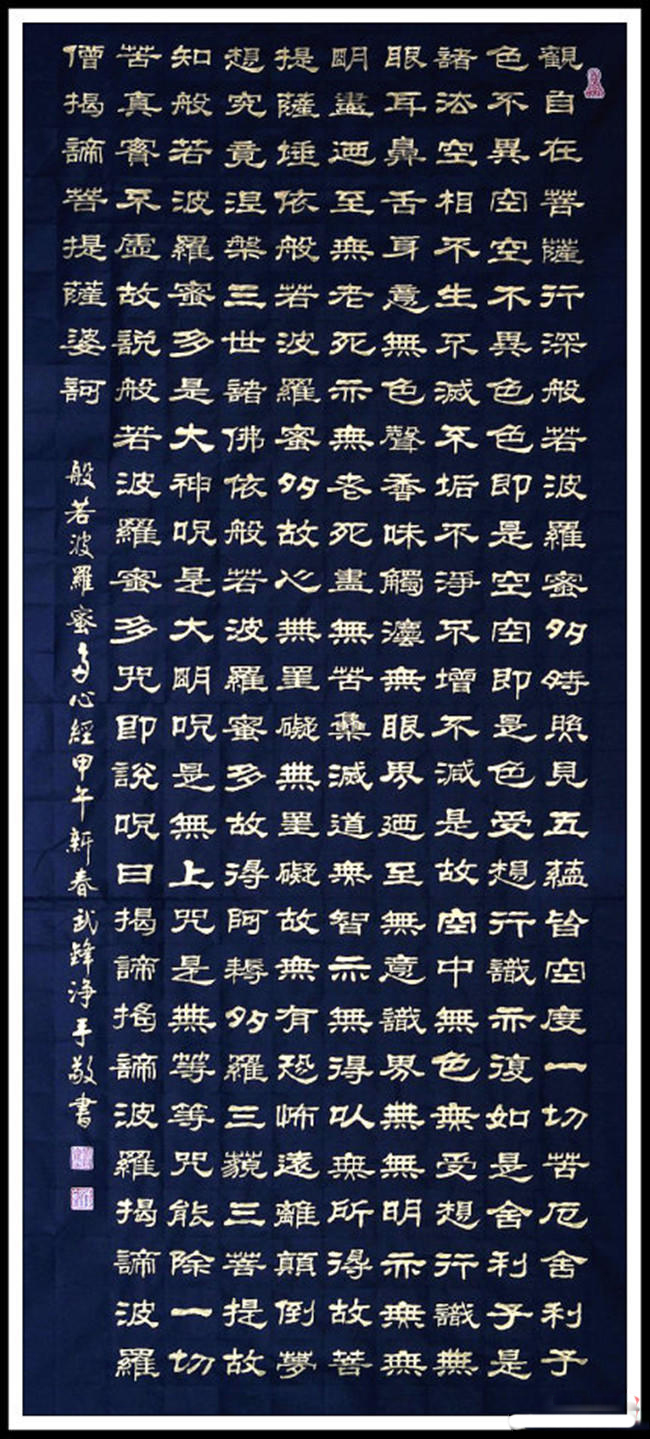 觀自在菩薩行深般若波羅蜜多時照見五蘊皆空度一切苦厄舍利子
色不異空空不異色色即是空空即是色受想行識亦復如是舍利子是
諸法空相不生不滅不垢不淨不增不減是故空中無色無受想行識無
眼耳鼻舌身意無色聲香味觸灋無眼界迺至無意識界無無明亦無無
明盡迺至無老死亦無老死盡無苦集滅道無智亦無得以無所得故菩
提薩埵依般若波羅蜜多故心無罣礙無罣礙故無有恐怖遠離顛倒夢
想究竟涅槃三世諸佛依般若波羅蜜多故得阿耨多羅三藐三菩提故
知般若波羅蜜多是大神呪是大明呪是無上咒是無等等咒能除一切
苦真實不虛故說般若波羅蜜多咒即說呪曰揭諦揭諦波羅揭諦波羅
僧揭諦菩提薩婆訶
般若波羅蜜多心經甲午新春武鋒淨手敬書